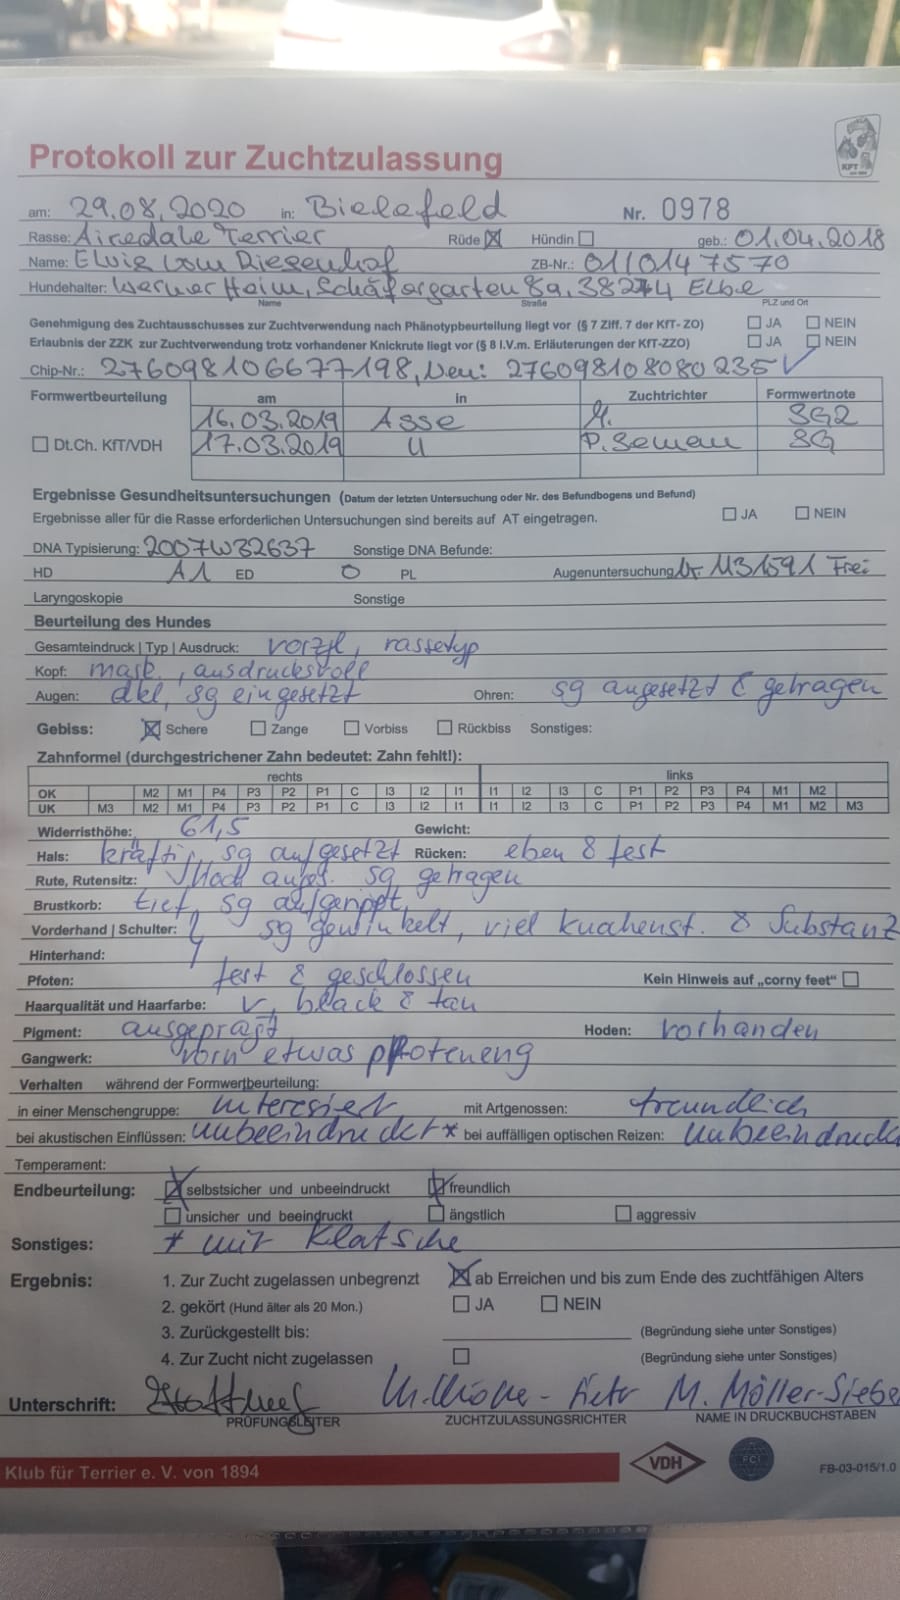 Protokoll zur Zuchtzulassung
KFT
am: 29.08.2020 in: Bielefeld Nr. 0978
Rasse: Airedale Terrier Rüde ☒ Hündin ☐ geb.: 01.04.2018
Name: Elvis vom Riesenhof ZB-Nr.: 011014 7570
Hundehalter: Werner Heim, Schäfergarten 8a, 38274 Elbe
Name Straße PLZ und Ort
Genehmigung des Zuchtausschusses zur Zuchtverwendung nach Phänotypbeurteilung liegt vor (§ 7 Ziff. 7 der KfT- ZO) ☐ JA ☐ NEIN
Erlaubnis der ZZK zur Zuchtverwendung trotz vorhandener Knickrute liegt vor (§ 8 I.V.m. Erläuterungen der KfT-ZZO) ☐ JA ☐ NEIN
Chip-Nr.: 276098106677198, Neu: 276098108080235 ✓
Formwertbeurteilung am in Zuchtrichter Formwertnote
16.03.2019 Asse SG2
☐ Dt.Ch. KfT/VDH 17.03.2019 u P. Seman SG
Ergebnisse Gesundheitsuntersuchungen (Datum der letzten Untersuchung oder Nr. des Befundbogens und Befund)
Ergebnisse aller für die Rasse erforderlichen Untersuchungen sind bereits auf AT eingetragen. ☐ JA ☐ NEIN
DNA Typisierung: 2007W32637 Sonstige DNA Befunde:
HD A1 ED 0 PL Augenuntersuchung Nr. 1131591 Frei
Laryngoskopie Sonstige
Beurteilung des Hundes
Gesamteindruck | Typ | Ausdruck: vorzgl, rassetyp
Kopf: mask., ausdrucksvoll
Augen: dkl, sg eingesetzt Ohren: sg angesetzt & getragen
Gebiss: ☒ Schere ☐ Zange ☐ Vorbiss ☐ Rückbiss Sonstiges:
Zahnformel (durchgestrichener Zahn bedeutet: Zahn fehlt!):
rechts links
OK M2 M1 P4 P3 P2 P1 C I3 I2 I1 I1 I2 I3 C P1 P2 P3 P4 M1 M2
UK M3 M2 M1 P4 P3 P2 P1 C I3 I2 I1 I1 I2 I3 C P1 P2 P3 P4 M1 M2 M3
Widerristhöhe: 61,5 Gewicht:
Hals: kräftig, sg aufgesetzt Rücken: eben & fest
Rute, Rutensitz: hoch anges. sg getragen
Brustkorb: tief, sg aufgerippt,
Vorderhand | Schulter: sg gewinkelt, viel knochenst. & Substanz
Hinterhand:
Pfoten: fest & geschlossen Kein Hinweis auf „corny feet“ ☐
Haarqualität und Haarfarbe: v, black & tan
Pigment: ausgeprägt Hoden: vorhanden
Gangwerk: vorn etwas pfoteneng
Verhalten während der Formwertbeurteilung:
in einer Menschengruppe: interessiert mit Artgenossen: freundlich
bei akustischen Einflüssen: unbeeindruckt * bei auffälligen optischen Reizen: unbeeindruckt
Temperament:
Endbeurteilung: ☒ selbstsicher und unbeeindruckt ☒ freundlich
☐ unsicher und beeindruckt ☐ ängstlich ☐ aggressiv
Sonstiges: * mit Klatsche
Ergebnis: 1. Zur Zucht zugelassen unbegrenzt ☒ ab Erreichen und bis zum Ende des zuchtfähigen Alters
2. gekört (Hund älter als 20 Mon.) ☐ JA ☐ NEIN
3. Zurückgestellt bis: (Begründung siehe unter Sonstiges)
4. Zur Zucht nicht zugelassen ☐ (Begründung siehe unter Sonstiges)
Unterschrift: M. Möller-Siebe
PRÜFUNGSLEITER ZUCHTZULASSUNGSRICHTER NAME IN DRUCKBUCHSTABEN
Klub für Terrier e. V. von 1894 VDH FCI FB-03-015/1.0